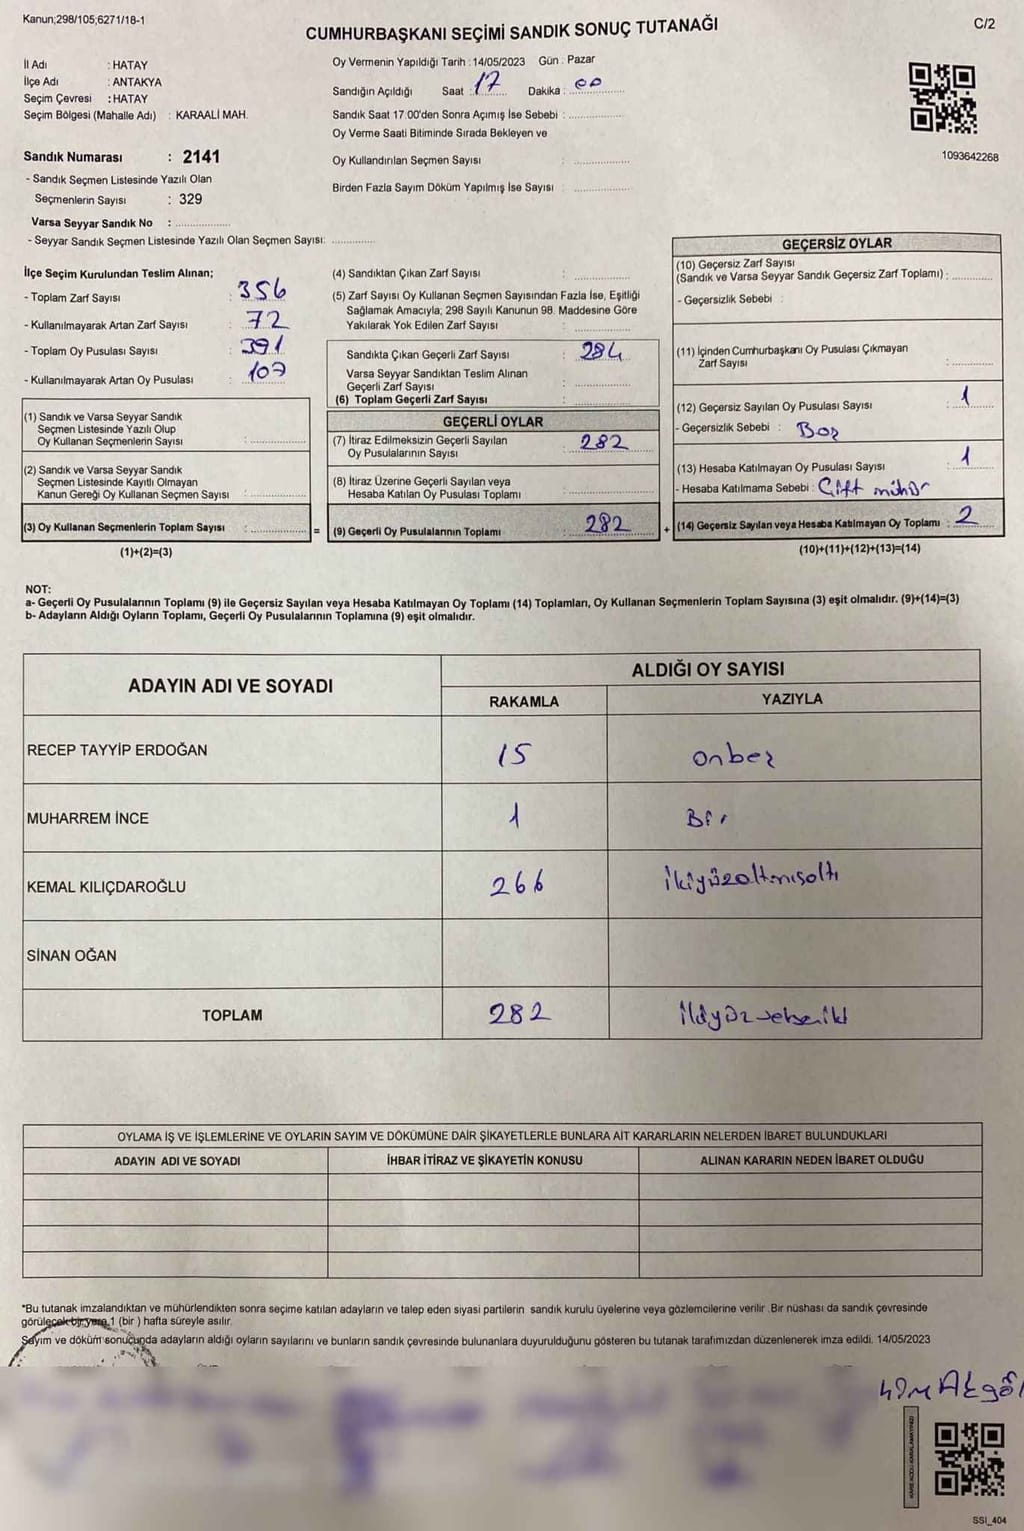 Kanun;298/105;6271/18-1
CUMHURBAŞKANI SEÇİMİ SANDIK SONUÇ TUTANAĞI
C/2
İl Adı : HATAY
İlçe Adı : ANTAKYA
Seçim Çevresi : HATAY
Seçim Bölgesi (Mahalle Adı) : KARAALİ MAH.
Oy Vermenin Yapıldığı Tarih : 14/05/2023 Gün : Pazar
Sandığın Açıldığı Saat : 17 Dakika : 00
Sandık Saat 17:00'den Sonra Açımış İse Sebebi :
Oy Verme Saati Bitiminde Sırada Bekleyen ve
Oy Kullandırılan Seçmen Sayısı :
Birden Fazla Sayım Döküm Yapılmış İse Sayısı :
1093642268
Sandık Numarası : 2141
- Sandık Seçmen Listesinde Yazılı Olan
Seçmenlerin Sayısı : 329
Varsa Seyyar Sandık No :
- Seyyar Sandık Seçmen Listesinde Yazılı Olan Seçmen Sayısı:
İlçe Seçim Kurulundan Teslim Alınan;
- Toplam Zarf Sayısı : 356
- Kullanılmayarak Artan Zarf Sayısı : 72
- Toplam Oy Pusulası Sayısı : 391
- Kullanılmayarak Artan Oy Pusulası : 107
(1) Sandık ve Varsa Seyyar Sandık
Seçmen Listesinde Yazılı Olup
Oy Kullanan Seçmenlerin Sayısı :
(2) Sandık ve Varsa Seyyar Sandık
Seçmen Listesinde Kayıtlı Olmayan
Kanun Gereği Oy Kullanan Seçmen Sayısı :
(3) Oy Kullanan Seçmenlerin Toplam Sayısı :
=
(1)+(2)=(3)
(4) Sandıktan Çıkan Zarf Sayısı :
(5) Zarf Sayısı Oy Kullanan Seçmen Sayısından Fazla İse, Eşitliği
Sağlamak Amacıyla; 298 Sayılı Kanunun 98. Maddesine Göre
Yakılarak Yok Edilen Zarf Sayısı :
Sandıkta Çıkan Geçerli Zarf Sayısı : 284
Varsa Seyyar Sandıktan Teslim Alınan
Geçerli Zarf Sayısı :
(6) Toplam Geçerli Zarf Sayısı :
GEÇERLİ OYLAR
(7) İtiraz Edilmeksizin Geçerli Sayılan
Oy Pusulalarının Sayısı : 282
(8) İtiraz Üzerine Geçerli Sayılan veya
Hesaba Katılan Oy Pusulası Toplamı :
(9) Geçerli Oy Pusulalarının Toplamı : 282
+
GEÇERSİZ OYLAR
(10) Geçersiz Zarf Sayısı
(Sandık ve Varsa Seyyar Sandık Geçersiz Zarf Toplamı) :
- Geçersizlik Sebebi :
(11) İçinden Cumhurbaşkanı Oy Pusulası Çıkmayan
Zarf Sayısı :
(12) Geçersiz Sayılan Oy Pusulası Sayısı : 1
- Geçersizlik Sebebi : Boş
(13) Hesaba Katılmayan Oy Pusulası Sayısı : 1
- Hesaba Katılmama Sebebi : Çift mühür
(14) Geçersiz Sayılan veya Hesaba Katılmayan Oy Toplamı : 2
(10)+(11)+(12)+(13)=(14)
NOT:
a- Geçerli Oy Pusulalarının Toplamı (9) ile Geçersiz Sayılan veya Hesaba Katılmayan Oy Toplamı (14) Toplamları, Oy Kullanan Seçmenlerin Toplam Sayısına (3) eşit olmalıdır. (9)+(14)=(3)
b- Adayların Aldığı Oyların Toplamı, Geçerli Oy Pusulalarının Toplamına (9) eşit olmalıdır.
ADAYIN ADI VE SOYADI
ALDIĞI OY SAYISI
RAKAMLA YAZIYLA
RECEP TAYYİP ERDOĞAN 15 onbeş
MUHARREM İNCE 1 Bir
KEMAL KILIÇDAROĞLU 266 ikiyüzaltmışaltı
SİNAN OĞAN
TOPLAM 282
OYLAMA İŞ VE İŞLEMLERİNE VE OYLARIN SAYIM VE DÖKÜMÜNE DAİR ŞİKAYETLERLE BUNLARA AİT KARARLARIN NELERDEN İBARET BULUNDUKLARI
ADAYIN ADI VE SOYADI İHBAR İTİRAZ VE ŞİKAYETİN KONUSU ALINAN KARARIN NEDEN İBARET OLDUĞU
*Bu tutanak imzalandıktan ve mühürlendikten sonra seçime katılan adayların ve talep eden siyasi partilerin sandık kurulu üyelerine veya gözlemcilerine verilir. Bir nüshası da sandık çevresinde
görülecek bir yere 1 (bir ) hafta süreyle asılır.
Sayım ve döküm sonucunda adayların aldığı oyların sayılarını ve bunların sandık çevresinde bulunanlara duyurulduğunu gösteren bu tutanak tarafımızdan düzenlenerek imza edildi. 14/05/2023
KARE KODU KARALAMAYINIZ!
SSI_404